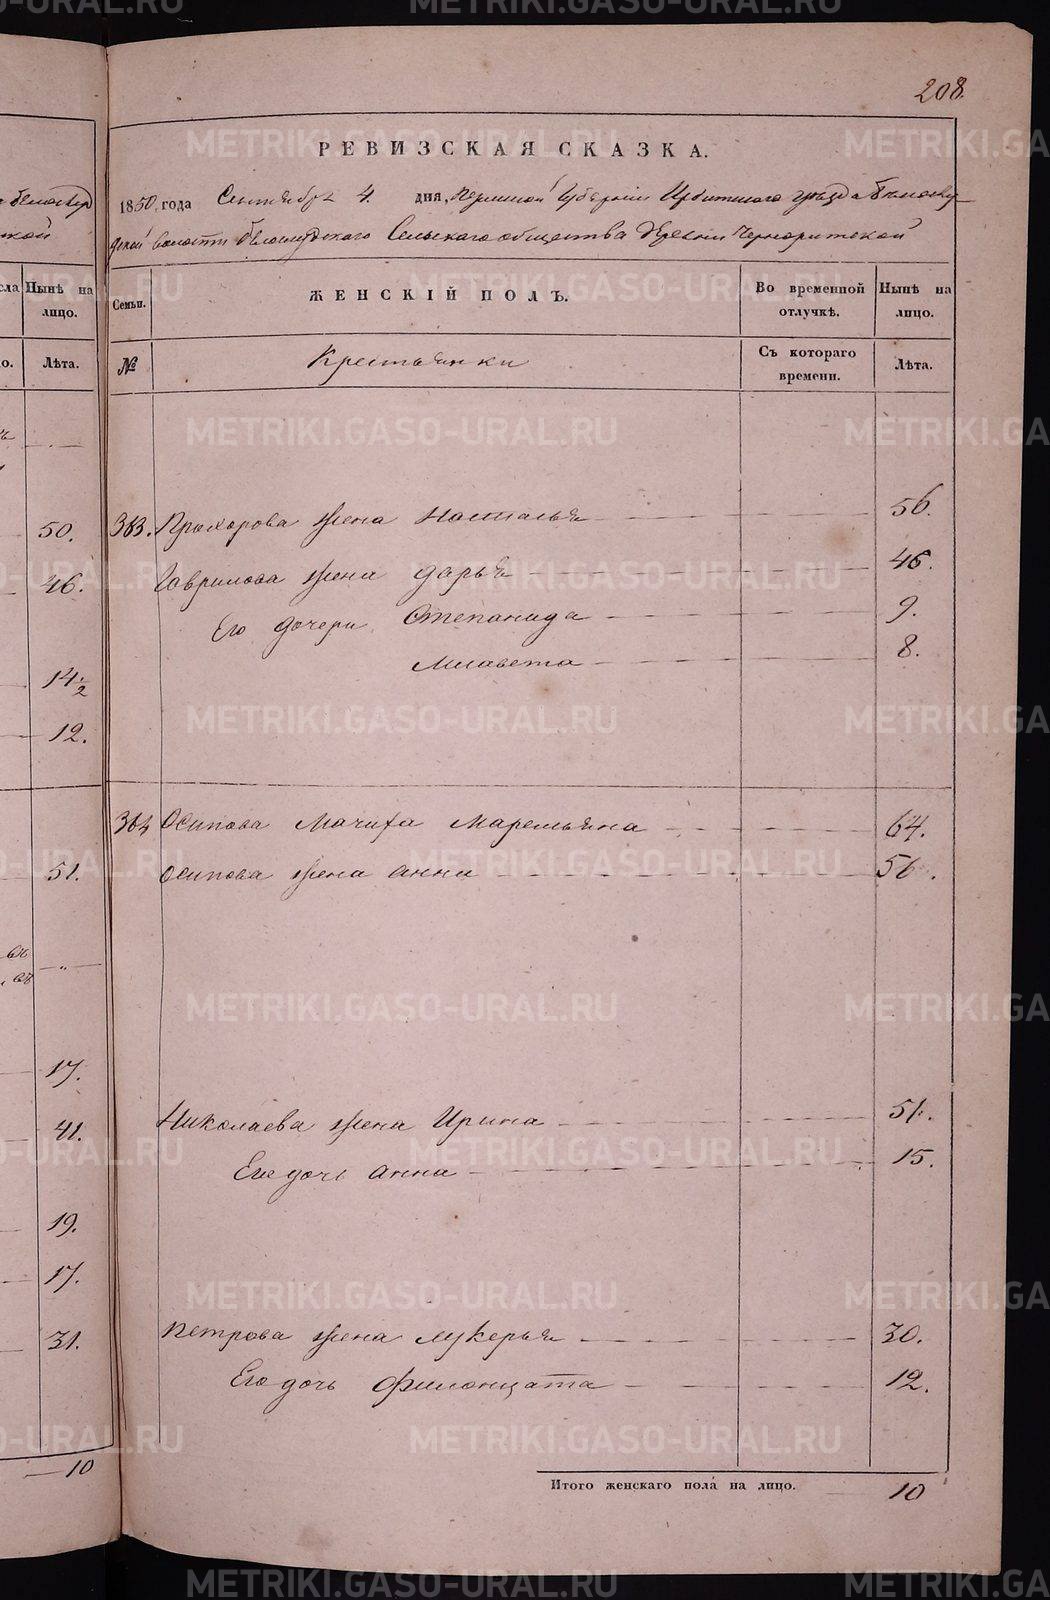 208.
РЕВИЗСКАЯ СКАЗКА.
1850 года Сентября 4 дня, Пермской Губернiи Ирбитскаго уѣзда Бѣлослу-
дской волости Бѣлослудскаго Сельскаго общества деревни Черноритской
Семьи. ЖЕНСКІЙ ПОЛЪ. Во временной отлучкѣ. Нынѣ на лицо.
№ Крестьянки Съ котораго времени. Лѣта.
383. Прохорова жена Насталья 56.
Гаврилова жена Дарья 46.
Его дочери Степанида 9.
Лисавета 8.
384 Осипова Мачиха Маремьяна 64.
Осипова жена Анна 56.
Николаева жена Ирина 51.
Его дочь Анна 15.
Петрова жена Лукерья 30.
Его дочь Филонцата 12.
Итого женскаго пола на лицо. 10
Нынѣ на лицо.
Лѣта.
50.
46.
14 1/2
12.
51.
17.
41.
19.
17.
31.
10
METRIKI.GASO-URAL.RU